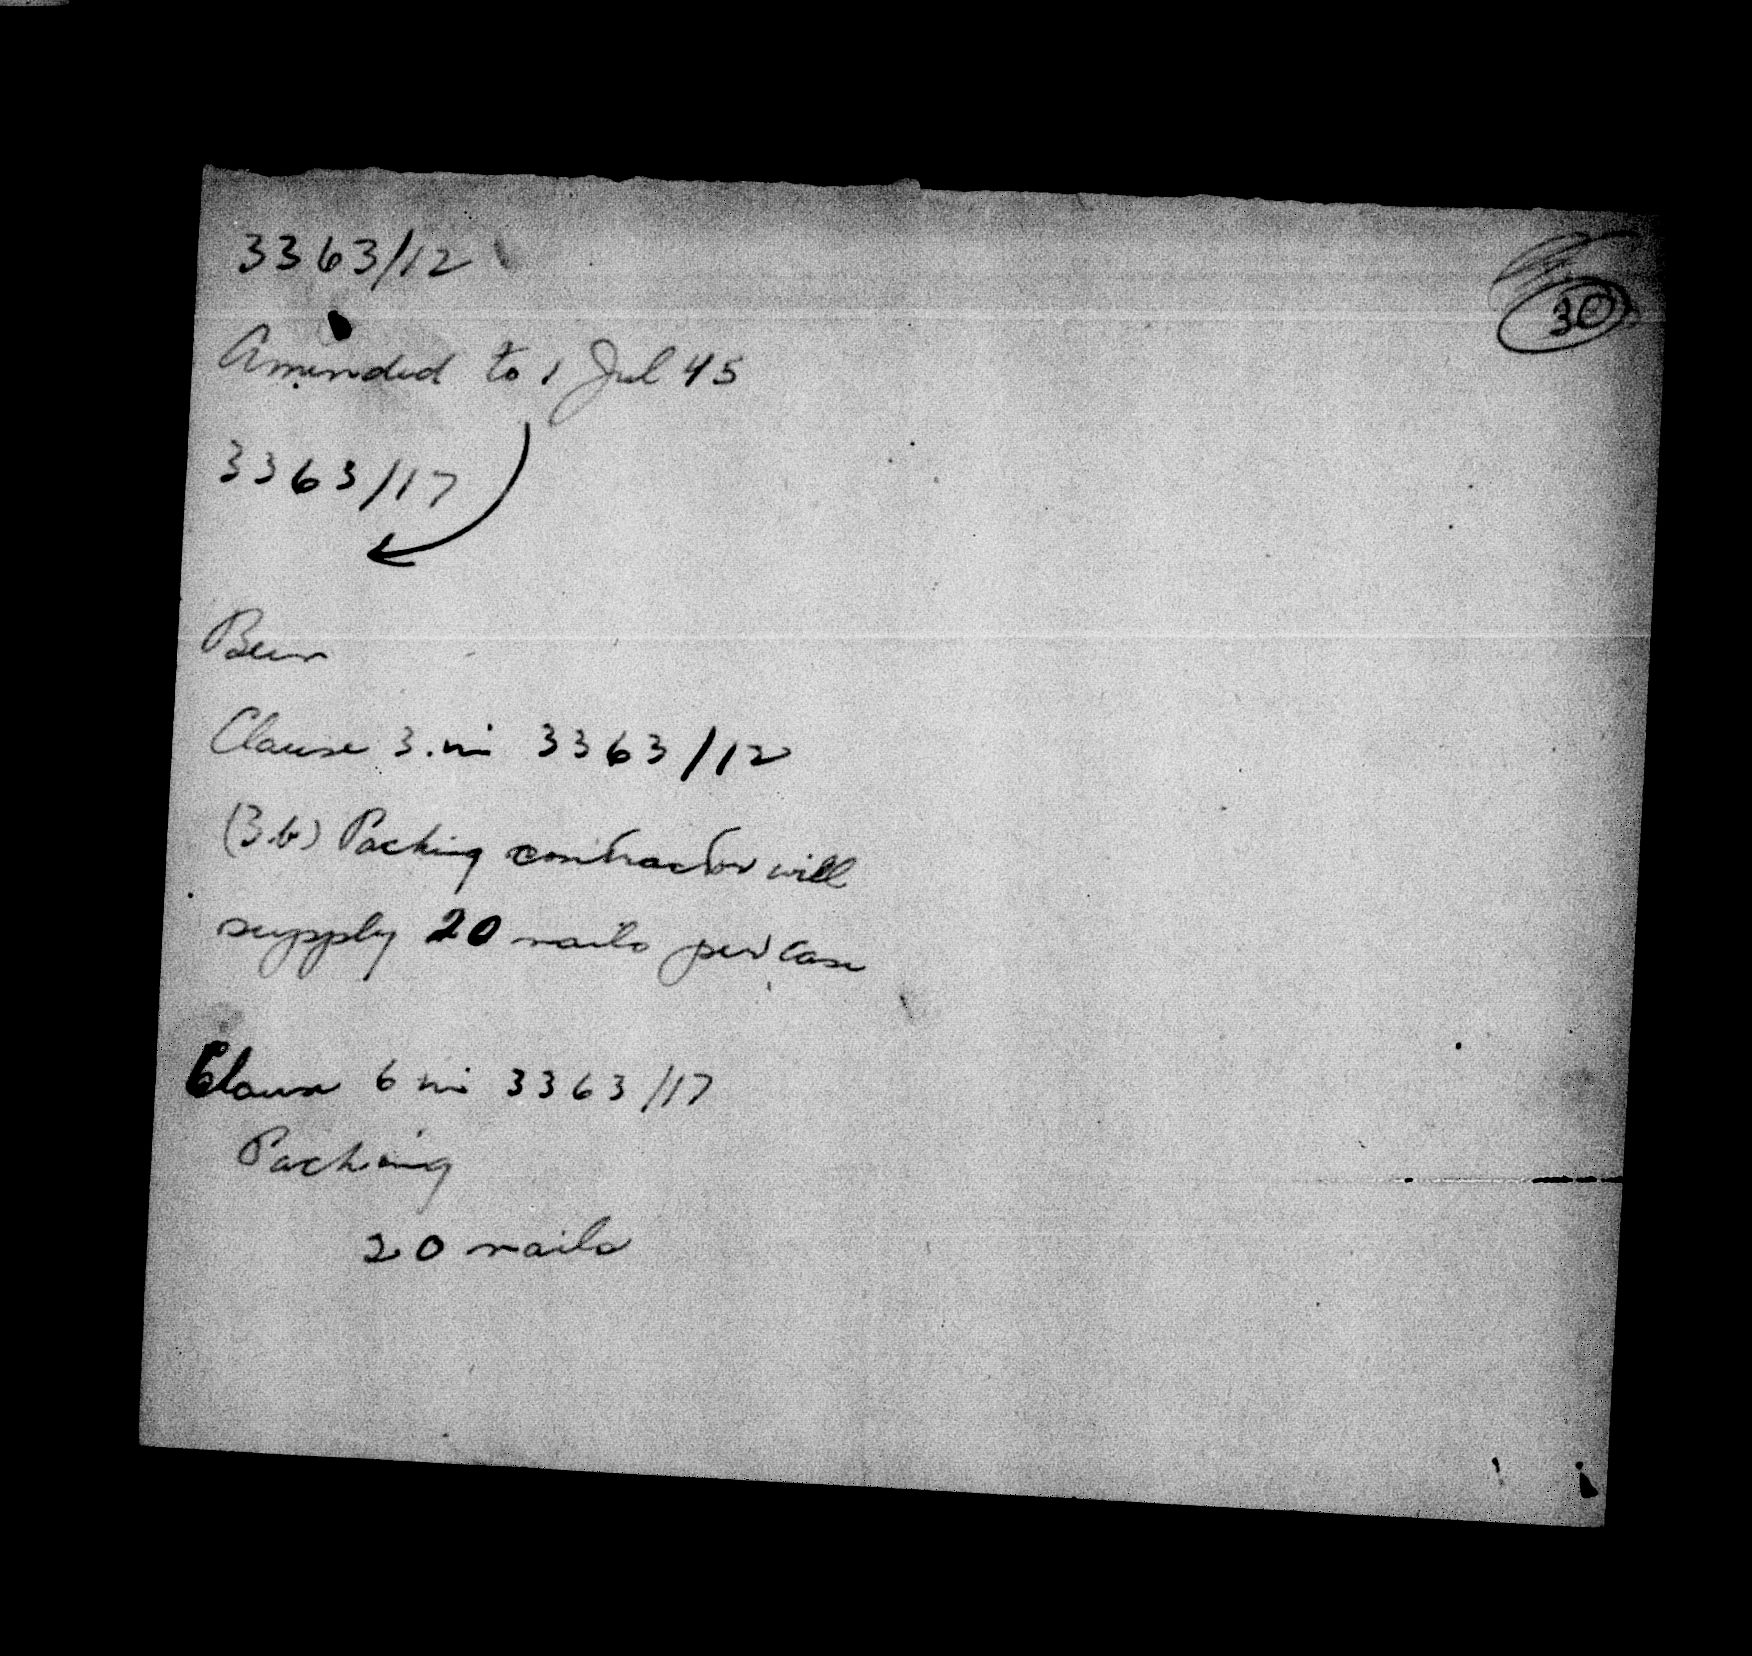 3363/12
30
Amended to 1 Jul 45
3363/17
Beer
Clause 3. in 3363/12
(3.b) Packing contractor will
supply 20 nails per case
Clause 6 in 3363/17
Packing
20 nails